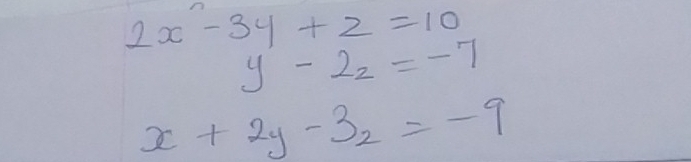 2x - 3y + z = 10
y - 2z = -7
x + 2y - 3z = -9